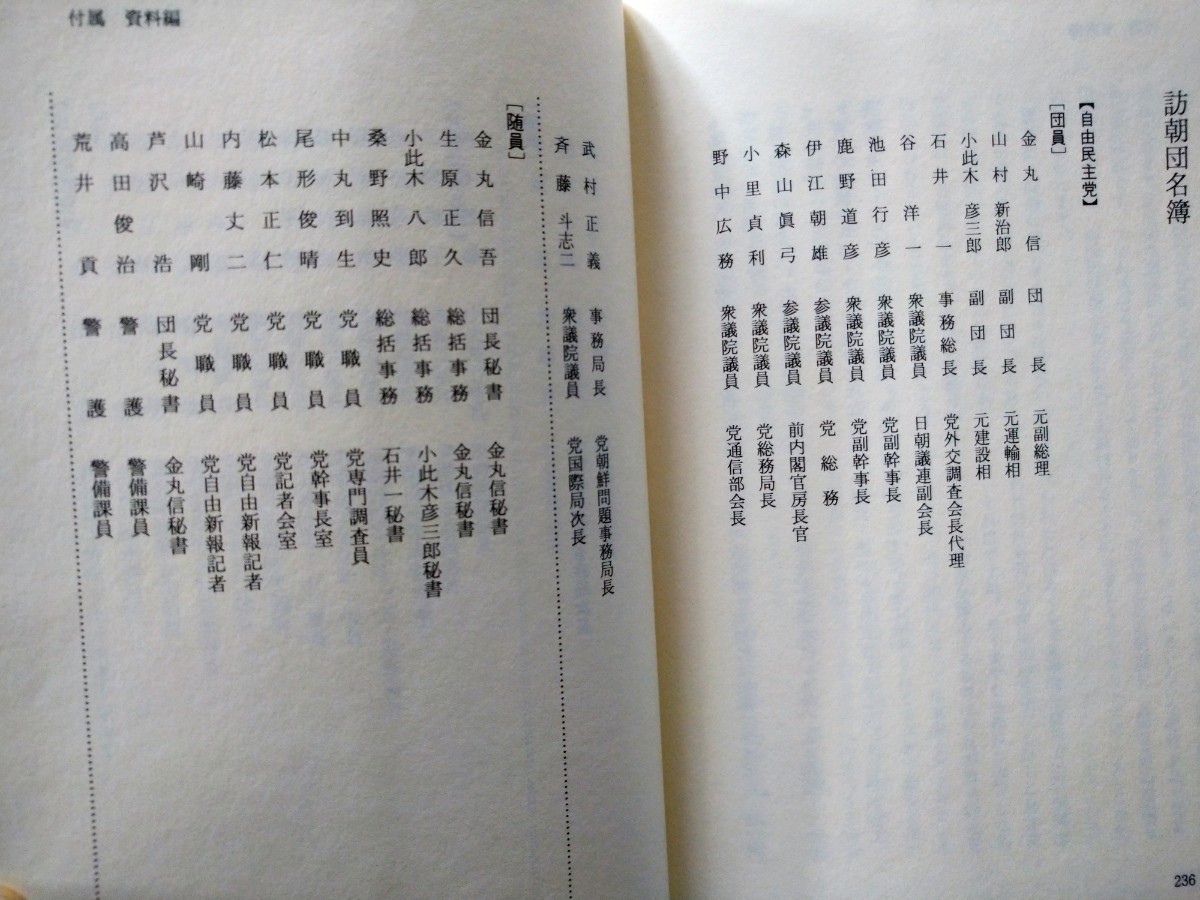 訪朝団名簿
【自由民主党】
［団員］
金丸　信　団長　元副総理
山村　新治郎　副団長　元運輸相
小此木　彦三郎　副団長　元建設相
石井　一　事務総長　党外交調査会長代理
谷　洋一　衆議院議員　日朝議連副会長
池田行彦　衆議院議員　党副幹事長
鹿野道彦　衆議院議員　党副幹事長
伊江朝雄　参議院議員　党総務
森山眞弓　参議院議員　前内閣官房長官
小里貞利　衆議院議員　党総務局長
野中広務　衆議院議員　党通信部会長
236
付属　資料編
武村正義　事務局長　党朝鮮問題事務局長
斉藤斗志二　衆議院議員　党国際局次長
［随員］
金丸信吾　団長秘書　金丸信秘書
生原正久　総括事務　金丸信秘書
小此木八郎　総括事務　小此木彦三郎秘書
桑野照史　総括事務　石井一秘書
中丸到生　党職員　党専門調査員
尾形俊晴　党職員　党幹事長室
松本正仁　党職員　党記者会室
内藤丈二　党職員　党自由新報記者
山崎　剛　党職員　党自由新報記者
芦沢　浩　団長秘書　金丸信秘書
高田俊治　警護　警備課員
荒井　貢　警護　警備課員